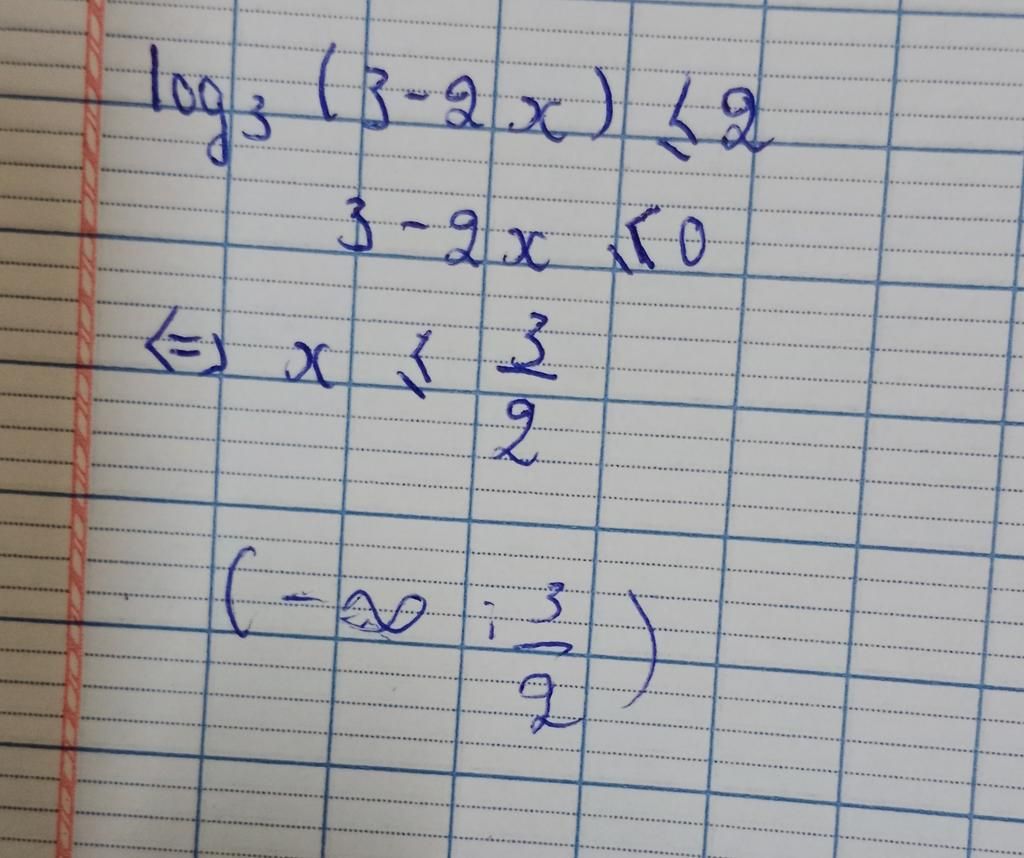 log₃ (3-2x) ≤ 2
3 - 2x ≤ 0
<=> x ≤ 3/2
(-∞ ; 3/2)